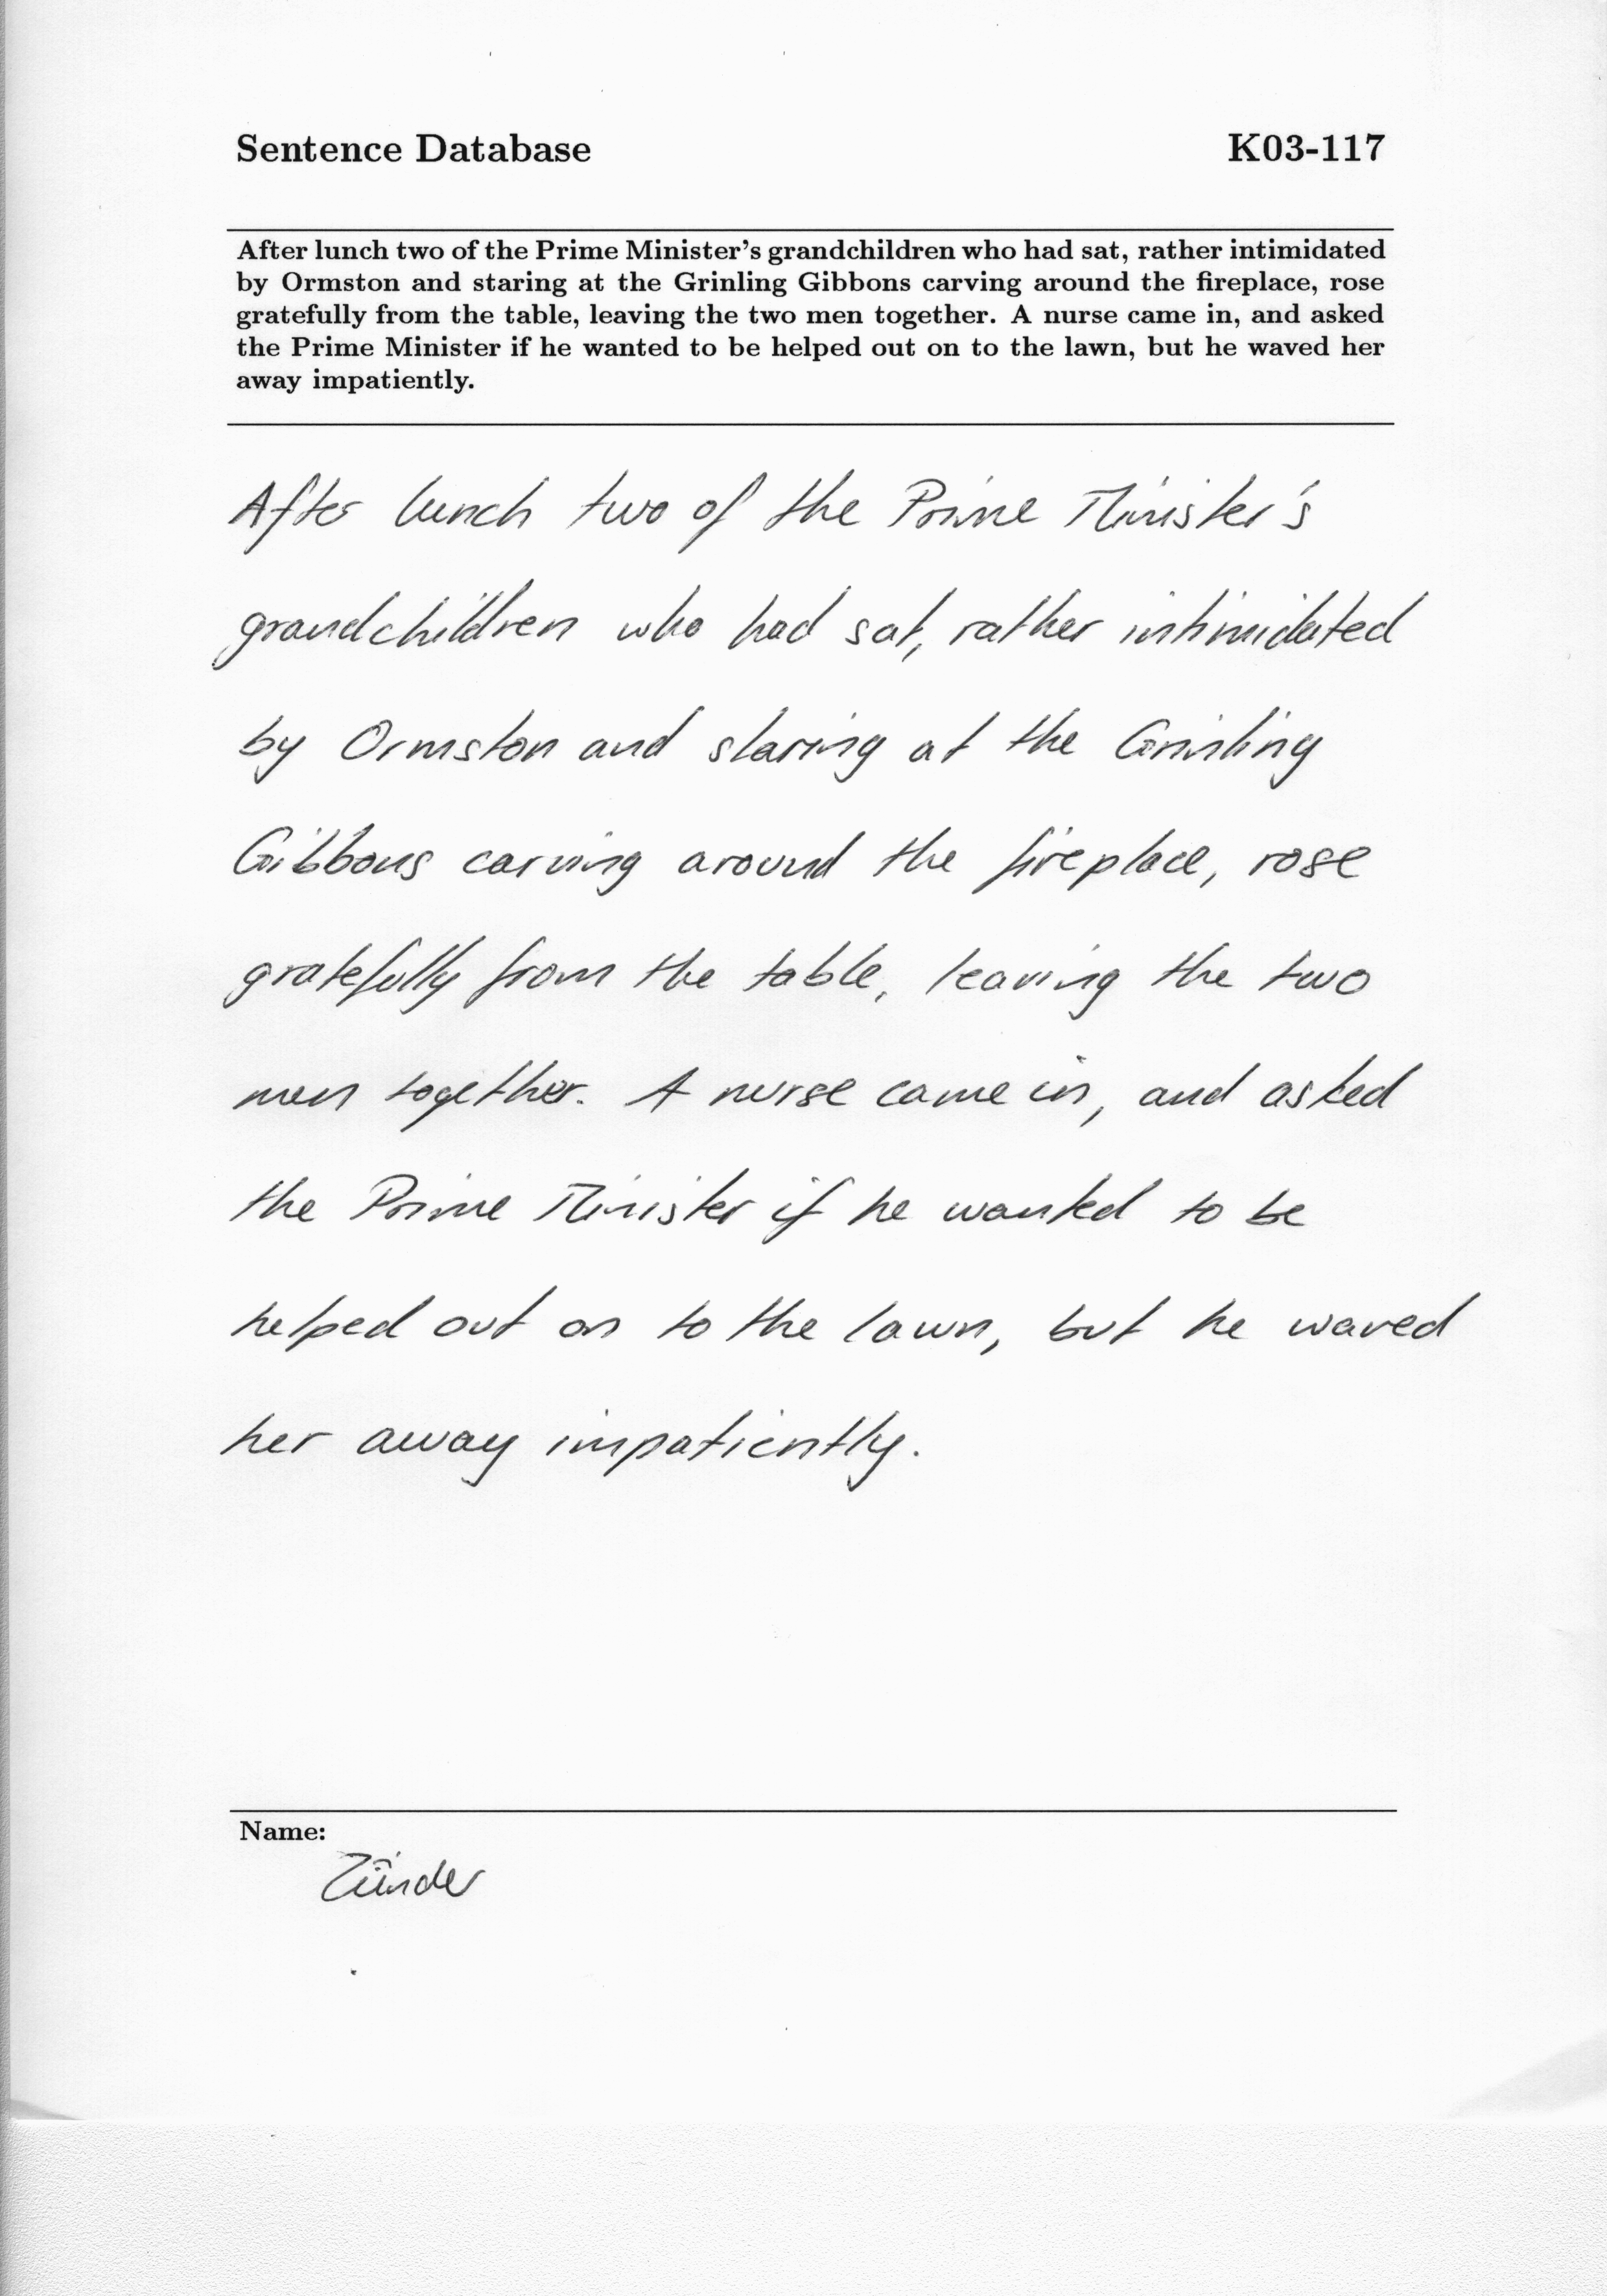 Sentence Database K03-117
After lunch two of the Prime Minister's grandchildren who had sat, rather intimidated
by Ormston and staring at the Grinling Gibbons carving around the fireplace, rose
gratefully from the table, leaving the two men together. A nurse came in, and asked
the Prime Minister if he wanted to be helped out on to the lawn, but he waved her
away impatiently.
After lunch two of the Prime Minister's
grandchildren who had sat, rather intimidated
by Ormston and staring at the Grinling
Gibbons carving around the fireplace, rose
gratefully from the table, leaving the two
men together. A nurse came in, and asked
the Prime Minister if he wanted to be
helped out on to the lawn, but he waved
her away impatiently.
Name:
Zünder